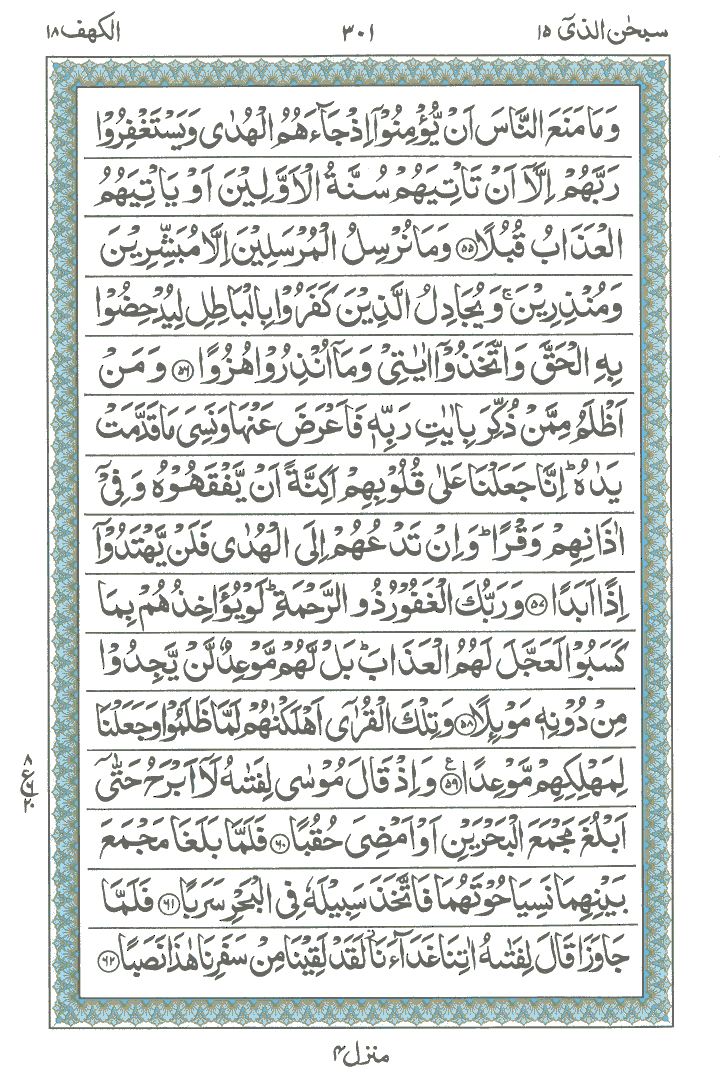 سبحٰن الذیٓ ۱۵
۳۰۱
الکهف ۱۸
وَمَا مَنَعَ النَّاسَ اَنْ يُّؤْمِنُوْۤا اِذْ جَآءَهُمُ الْهُدٰى وَيَسْتَغْفِرُوْا
رَبَّهُمْ اِلَّاۤ اَنْ تَاْتِيَهُمْ سُنَّةُ الْاَوَّلِيْنَ اَوْ يَاْتِيَهُمُ
الْعَذَابُ قُبُلًا ﴿۵۵﴾ وَمَا نُرْسِلُ الْمُرْسَلِيْنَ اِلَّا مُبَشِّرِيْنَ
وَمُنْذِرِيْنَ ۚ وَيُجَادِلُ الَّذِيْنَ كَفَرُوْا بِالْبَاطِلِ لِيُدْحِضُوْا
بِهِ الْحَقَّ وَاتَّخَذُوْۤا اٰيٰتِيْ وَمَاۤ اُنْذِرُوْا هُزُوًا ﴿۵۶﴾ وَمَنْ
اَظْلَمُ مِمَّنْ ذُكِّرَ بِاٰيٰتِ رَبِّهٖ فَاَعْرَضَ عَنْهَا وَنَسِيَ مَا قَدَّمَتْ
يَدٰهُ ؕ اِنَّا جَعَلْنَا عَلٰى قُلُوْبِهِمْ اَكِنَّةً اَنْ يَّفْقَهُوْهُ وَفِيْۤ
اٰذَانِهِمْ وَقْرًا ؕ وَاِنْ تَدْعُهُمْ اِلَى الْهُدٰى فَلَنْ يَّهْتَدُوْۤا
اِذًا اَبَدًا ﴿۵۷﴾ وَرَبُّكَ الْغَفُوْرُ ذُو الرَّحْمَةِ ؕ لَوْ يُؤَاخِذُهُمْ بِمَا
كَسَبُوْا لَعَجَّلَ لَهُمُ الْعَذَابَ ؕ بَلْ لَّهُمْ مَّوْعِدٌ لَّنْ يَّجِدُوْا
مِنْ دُوْنِهٖ مَوْىِٕلًا ﴿۵۸﴾ وَتِلْكَ الْقُرٰۤى اَهْلَكْنٰهُمْ لَمَّا ظَلَمُوْا وَجَعَلْنَا
لِمَهْلِكِهِمْ مَّوْعِدًا ﴿۵۹﴾ ع وَاِذْ قَالَ مُوْسٰى لِفَتٰىهُ لَاۤ اَبْرَحُ حَتّٰۤى
اَبْلُغَ مَجْمَعَ الْبَحْرَيْنِ اَوْ اَمْضِيَ حُقُبًا ﴿۶۰﴾ فَلَمَّا بَلَغَا مَجْمَعَ
بَيْنِهِمَا نَسِيَا حُوْتَهُمَا فَاتَّخَذَ سَبِيْلَهٗ فِي الْبَحْرِ سَرَبًا ﴿۶۱﴾ فَلَمَّا
جَاوَزَا قَالَ لِفَتٰىهُ اٰتِنَا غَدَآءَنَا ؗ لَقَدْ لَقِيْنَا مِنْ سَفَرِنَا هٰذَا نَصَبًا ﴿۶۲﴾
۸
ع ۶
۲۰
منزل ۴